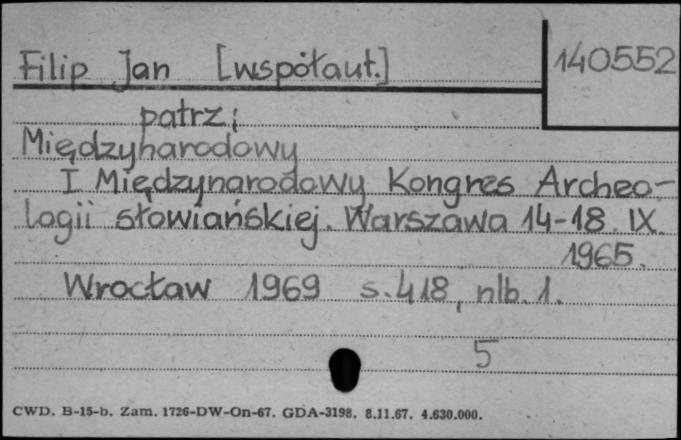 Filip Jan [współaut.]
140552
patrz:
Międzynarodowy
I Międzynarodowy Kongres Archeo-
logii słowiańskiej. Warszawa 14-18. IX.
1965.
Wrocław 1969 s. 418, nlb. 1.
5
CWD. B-15-b. Zam. 1726-DW-On-67. GDA-3198. 8.11.67. 4.630.000.